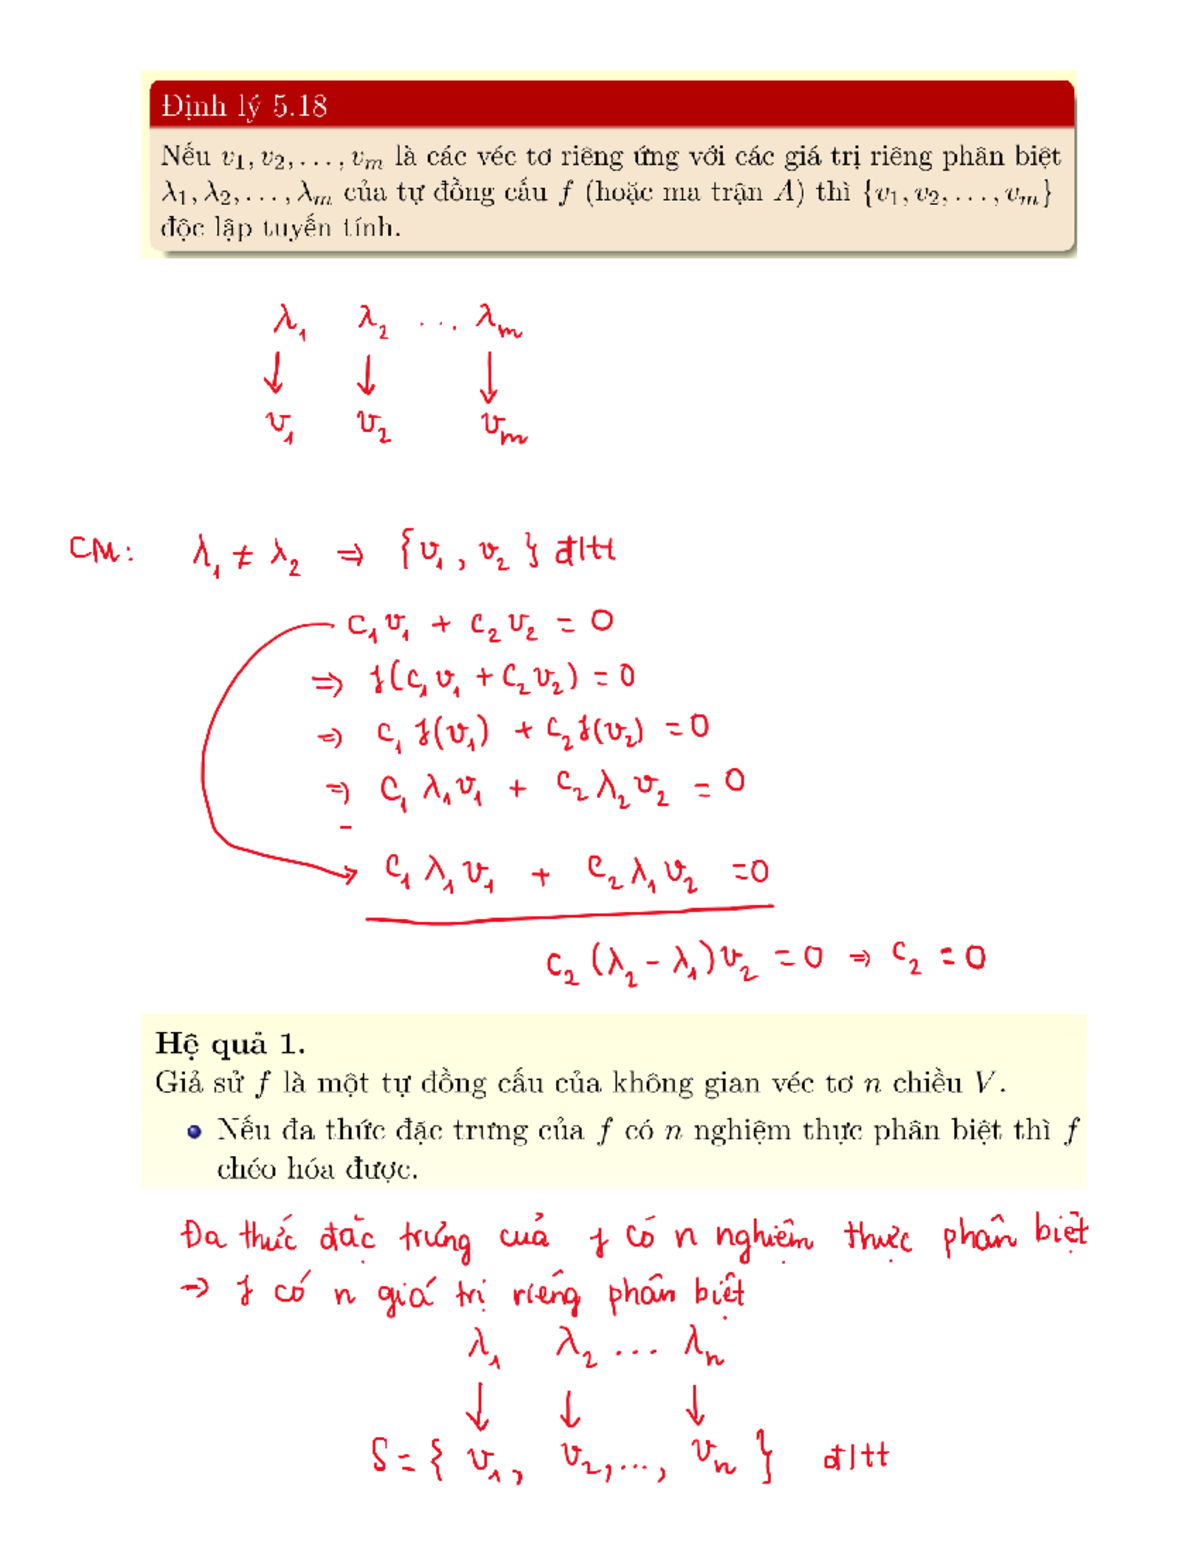 Định lý 5.18
Nếu v₁, v₂, . . . , vₘ là các véc tơ riêng ứng với các giá trị riêng phân biệt
λ₁, λ₂, . . . , λₘ của tự đồng cấu f (hoặc ma trận A) thì {v₁, v₂, . . . , vₘ}
độc lập tuyến tính.
λ₁ λ₂ ... λₘ
↓ ↓ ↓
v₁ v₂ vₘ
CM: λ₁ ≠ λ₂ ⇒ {v₁, v₂} đltt
c₁v₁ + c₂v₂ = 0
⇒ f(c₁v₁ + c₂v₂) = 0
⇒ c₁f(v₁) + c₂f(v₂) = 0
⇒ c₁λ₁v₁ + c₂λ₂v₂ = 0
-
c₁λ₁v₁ + c₂λ₁v₂ = 0
c₂(λ₂ - λ₁)v₂ = 0 ⇒ c₂ = 0
Hệ quả 1.
Giả sử f là một tự đồng cấu của không gian véc tơ n chiều V.
• Nếu đa thức đặc trưng của f có n nghiệm thực phân biệt thì f
chéo hóa được.
Đa thức đặc trưng của f có n nghiệm thực phân biệt
⇒ f có n giá trị riêng phân biệt
λ₁ λ₂ ... λₙ
↓ ↓ ↓
S = { v₁, v₂, ..., vₙ } đltt